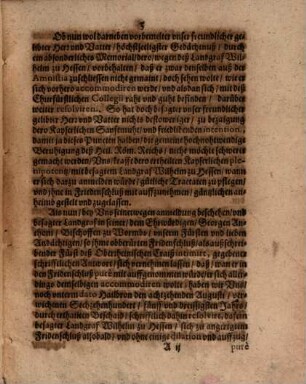 5
Ob nun wol darneben vorbemelter unser freundlicher ge-
liebter Herr und Vatter / höchstseeligster Gedächtnuß / durch
ein absonderliches Memorial dero / wegen deß Landgraf Wil-
helm zu Hessen / vorbehalten / daß er zwar denselben auß des
Amnistia zuschliessen nicht gemaint / doch sehen wolt / wie er
sich vorhero accommodiren werde / und als dan sich / mit deß
Churfürstlichen Collegii raht und guht befinden / darüber
weiter resolviren. So hat doch besagter unser freundlicher
geliebter Herr und Vatter nichts destoweniger / zu bezaigung
dero Kayserlichen Sanftmuht / und friedliebenden intention,
damit ja dieses Puncten halben / die gemeine hochnohtwendige
Beruhigung deß Heil. Röm. Reichs / nicht möchte schwerer
gemacht werden / Uns / krafft dero ertheilten Kayserlichen ple-
nipotentz / mit besagtem Landgraf Wilhelm zu Hessen / wann
er sich darzu anmelden würde / gütliche Tractaten zu pflegen /
und ihne in Friedenschluß mit auffzunehmen / gäntzlichen an-
heimb gestelt und zugelassen.
Als nun / bey Uns seinetwegen anmeldung beschehen / und
besagter Landgraf in seiner / dem Ehrwürdigen / Georg An-
thoni / Bischoffen zu Wormbs / unserm Fürsten und lieben
Andächtigen / so ihme obberürten Friedenschluß / als außschrei-
bender Fürst deß Oberrheinischen Craiß intimirt, gegebenen
schrifftlichen Antwort / sich vernehmen lassen / daß / wan er in
den Friedenschluß purè mit auffgenommen würde / er sich aller-
dings demselben accommodiren wolte / haben wir Uns /
noch unterm dato Hailbron den achtzehenden Augusti / ver-
wichenen Sechzehenhundert / fünff und dreissigsten Jahrs /
durch ertheilten Beschaid / schrifftlich dahin resolvirt, daß
besagter Landgraf Wilhelm zu Hessen / sich zu angeregtem
Friedenschluß alsobald / und ohne einige dilation und auffzüg /
A ij
purè